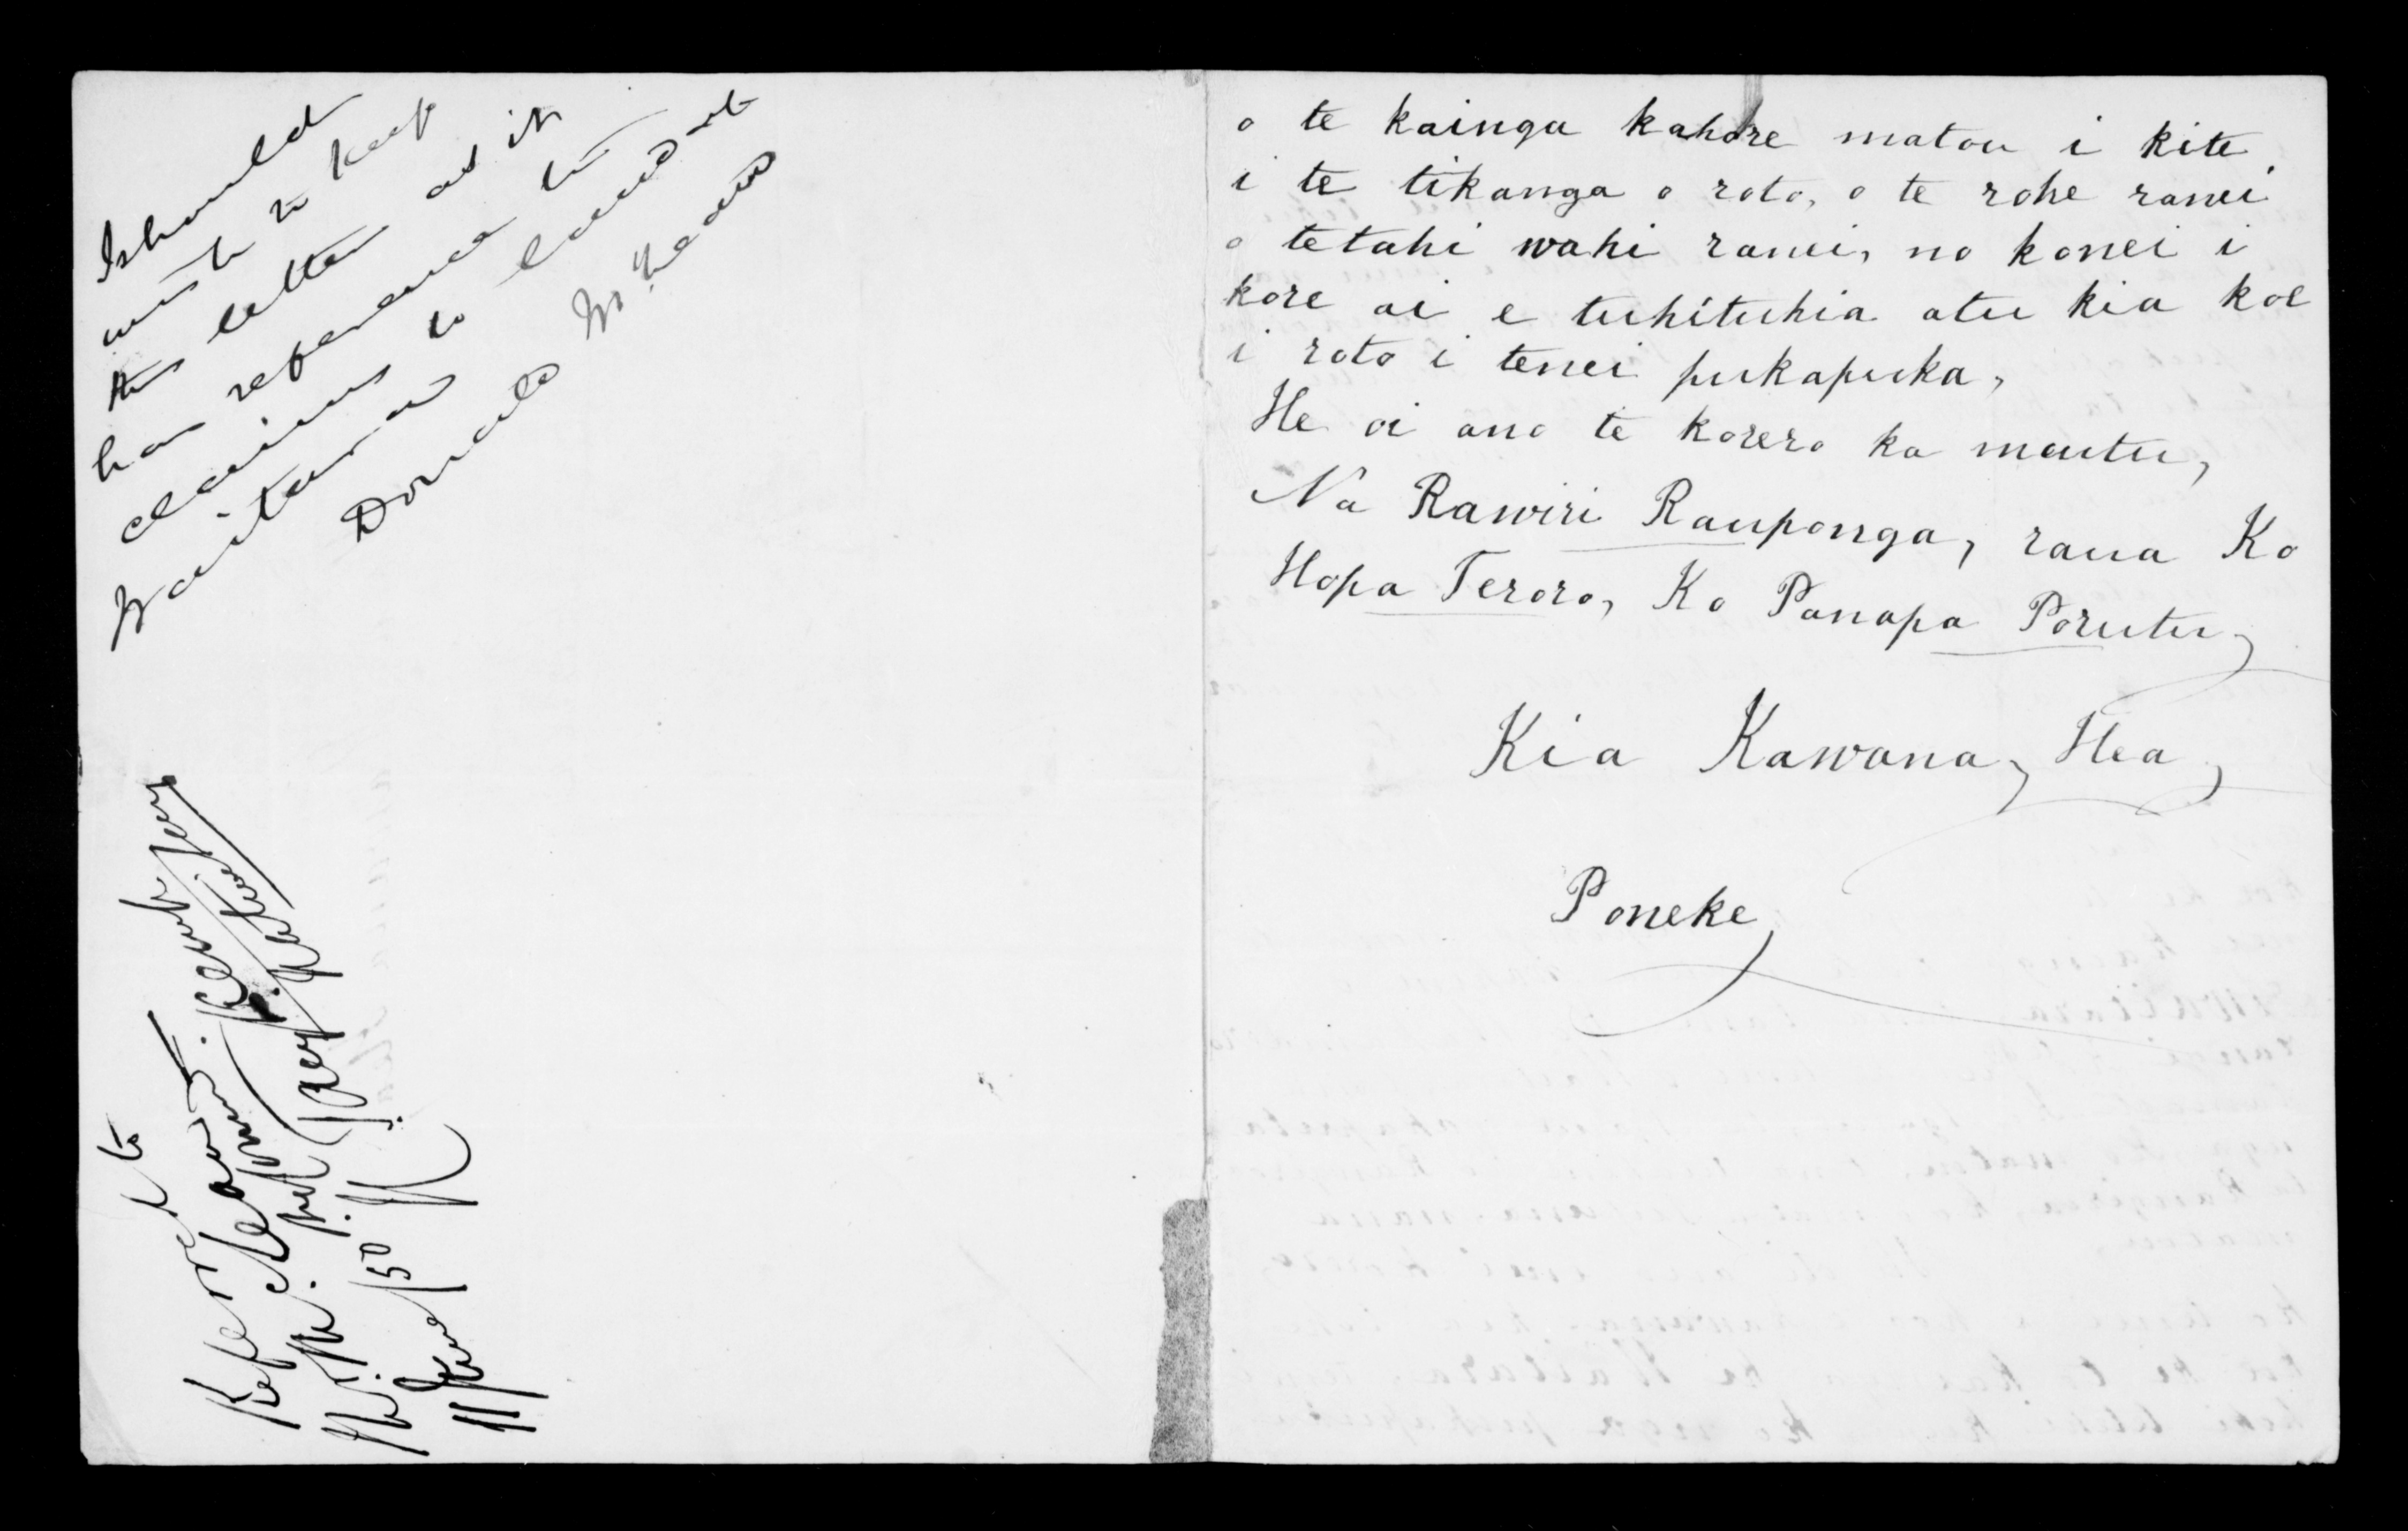 I should
wish to keep
this letter as it
has reference to
claims to land at
Waitara
Donald McLean
Referred to
McLean
11 June/50
o te kainga kahore matou i kite
i te tikanga o roto, o te rohe ranei
o tetahi wahi ranei, no konei i
kore ai e tuhituhia atu kia koe
i roto i tenei pukapuka,
He oi ano te korero ka mutu,
Na Rawiri Rauponga, raua Ko
Hopa Teroro, Ko Panapa Porutu,
Kia Kawana, Hea,
Poneke,